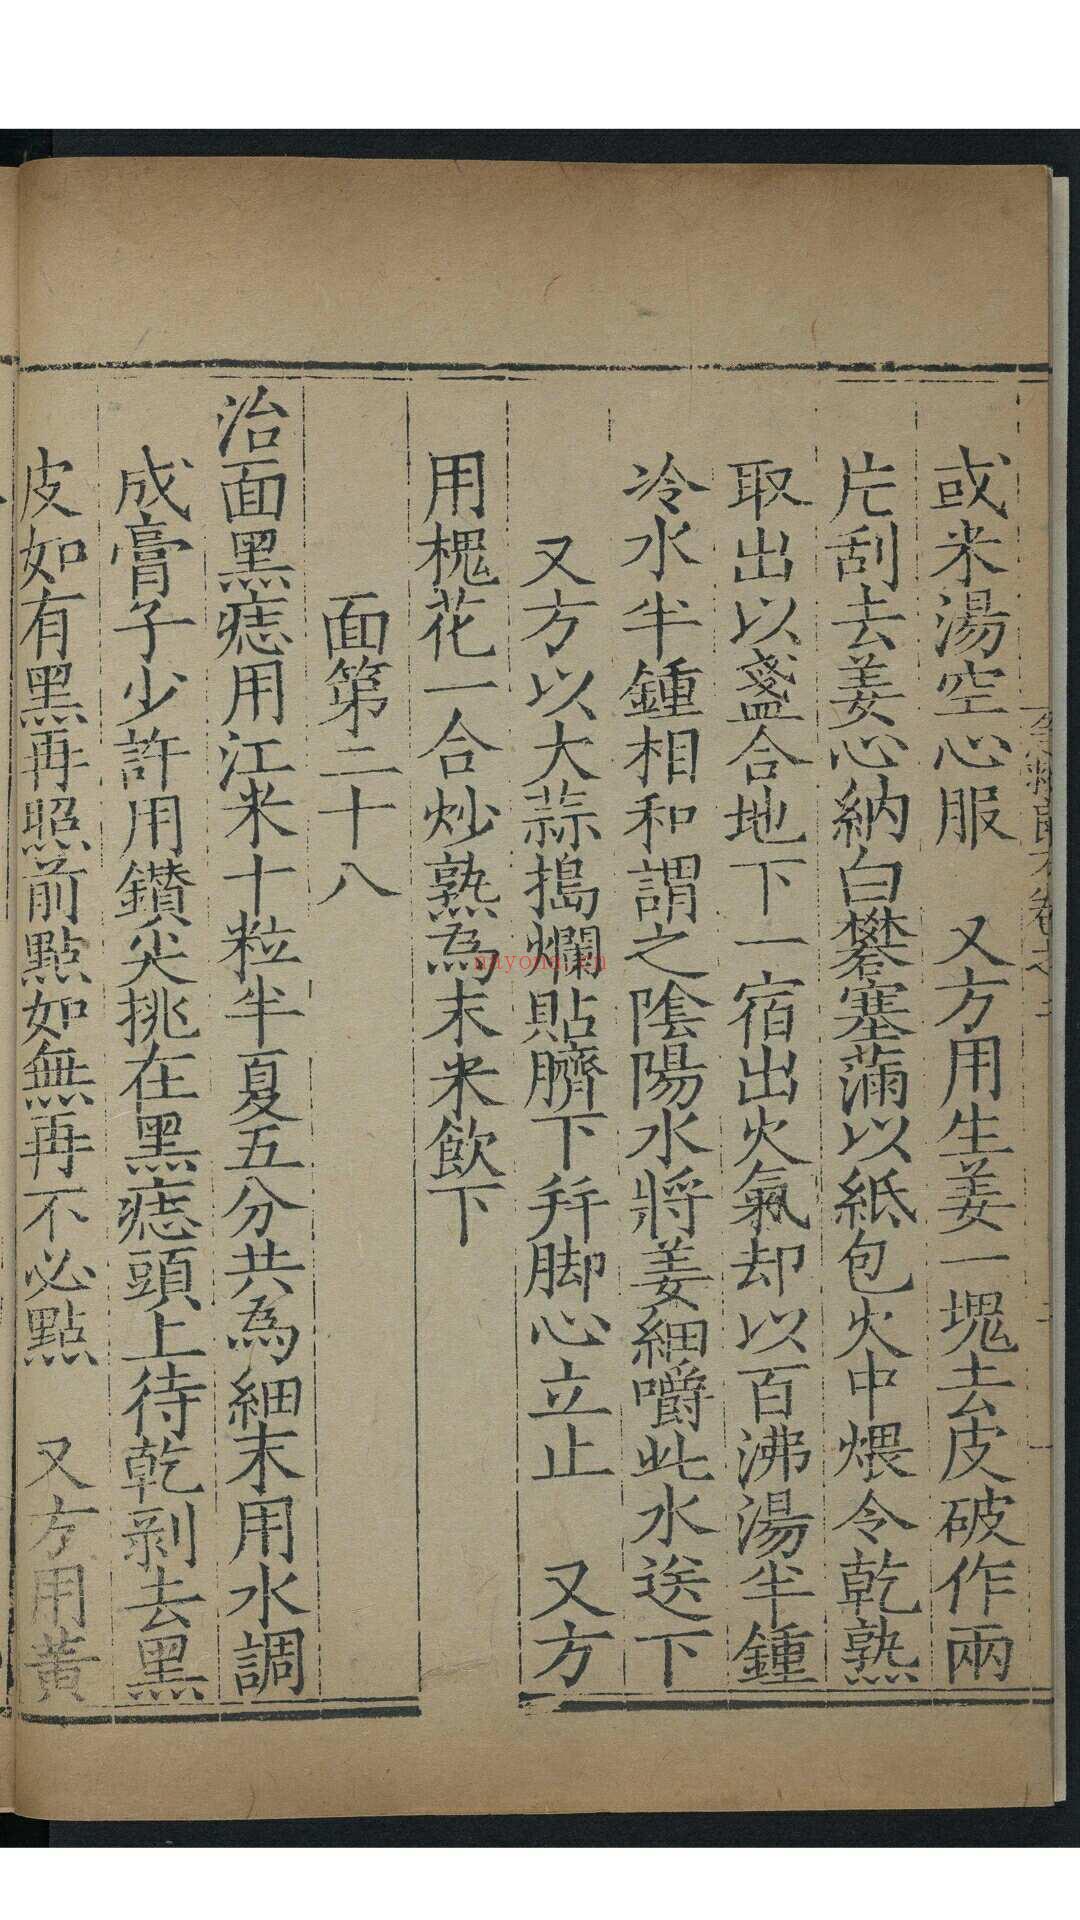 或米湯空心服　又方用生姜一塊去皮破作兩
片刮去姜心納白礬塞滿以紙包火中煨令乾熟
取出以盞合地下一宿出火氣却以百沸湯半鍾
冷水半鍾相和謂之隂陽水將姜細嚼此水送下
又方以大蒜搗爛貼臍下幷脚心立止　又方
用槐花一合炒熟為末米飲下
面第二十八
治面黑痣用江米十粒半夏五分共為細末用水調
成膏子少許用鑚尖挑在黑痣頭上待乾剥去黑
皮如有黑再照前點如無再不必點　又方用黃